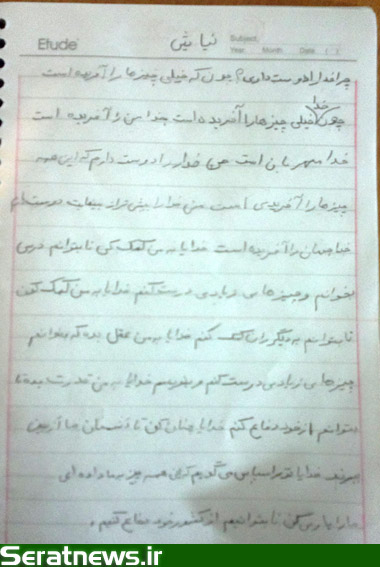 Etude
Subject.
Year. Month. Date. ( )
نیایش
چرا خدا را دوست داری؟ چون که خیلی چیزها را آفریده است
چون خدا خیلی چیزها را آفریده است خدا من را آفریده است
خدا مهربان است من خدا را دوست دارم که این همه
چیزها را آفریدی است من خدا را بیش تر از بینهایت دوست دارم
خدا جهان را آفریده است خدایا به من کمک کن تا بتوانم درس
بخوانم و چیزهایی زیادی درست کنم خدایا به من کمک کن
تا بتوانم به دیگران کمک کنم خدایا به من عقل بده که بتوانم
چیزهایی زیادی درست کنم و بنویسم خدایا به من قدرت بده تا
بتوانم از خود دفاع کنم خدایا چنان کن تا دشمنان ما از بین
بروند خدایا تو را سپاس می گویم که این همه چیز به ما داده ای
ما را یاری کن تا بتوانیم از کشور خود دفاع کنیم .
Seratnews.ir